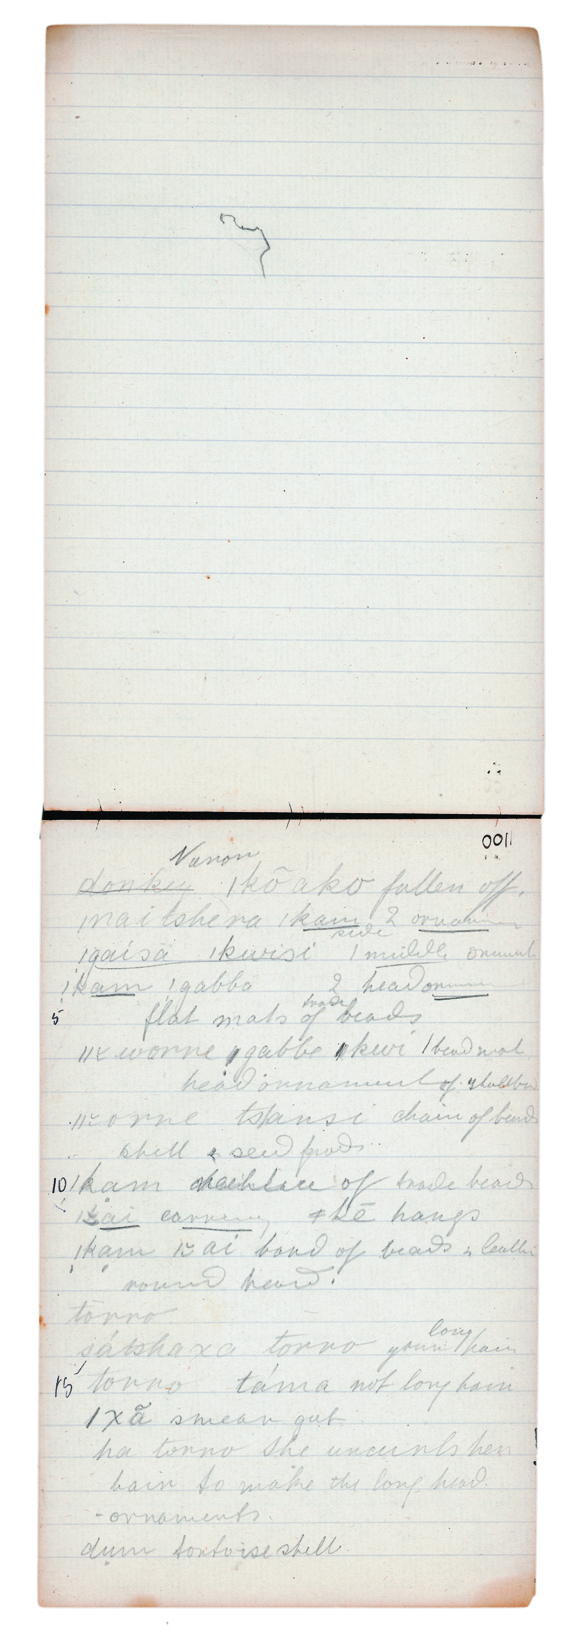 0011
Naron
donkey ǀkō ako fallen off.
maitshera ǀkam 2
side
ǀgaisa ǀkwisi 1 middle
ǀkam ǀgabba 2 head
trade
5 flat mats of beads
worne ǀgabbe ǀkwi 1 bead mat
head ornament of
orne tsansi chain of beads
shell & seed pods
10 ǀkam necklace of trade beads
ǂkē hangs
ǀkam ai band of beads &
round head.
torro
long
sátshaxa torro hair
15 torro táma not long hair
ǀxã smear gut
ha torro she uncurls her
hair to make the long head
-ornaments.
dum tortoise shell